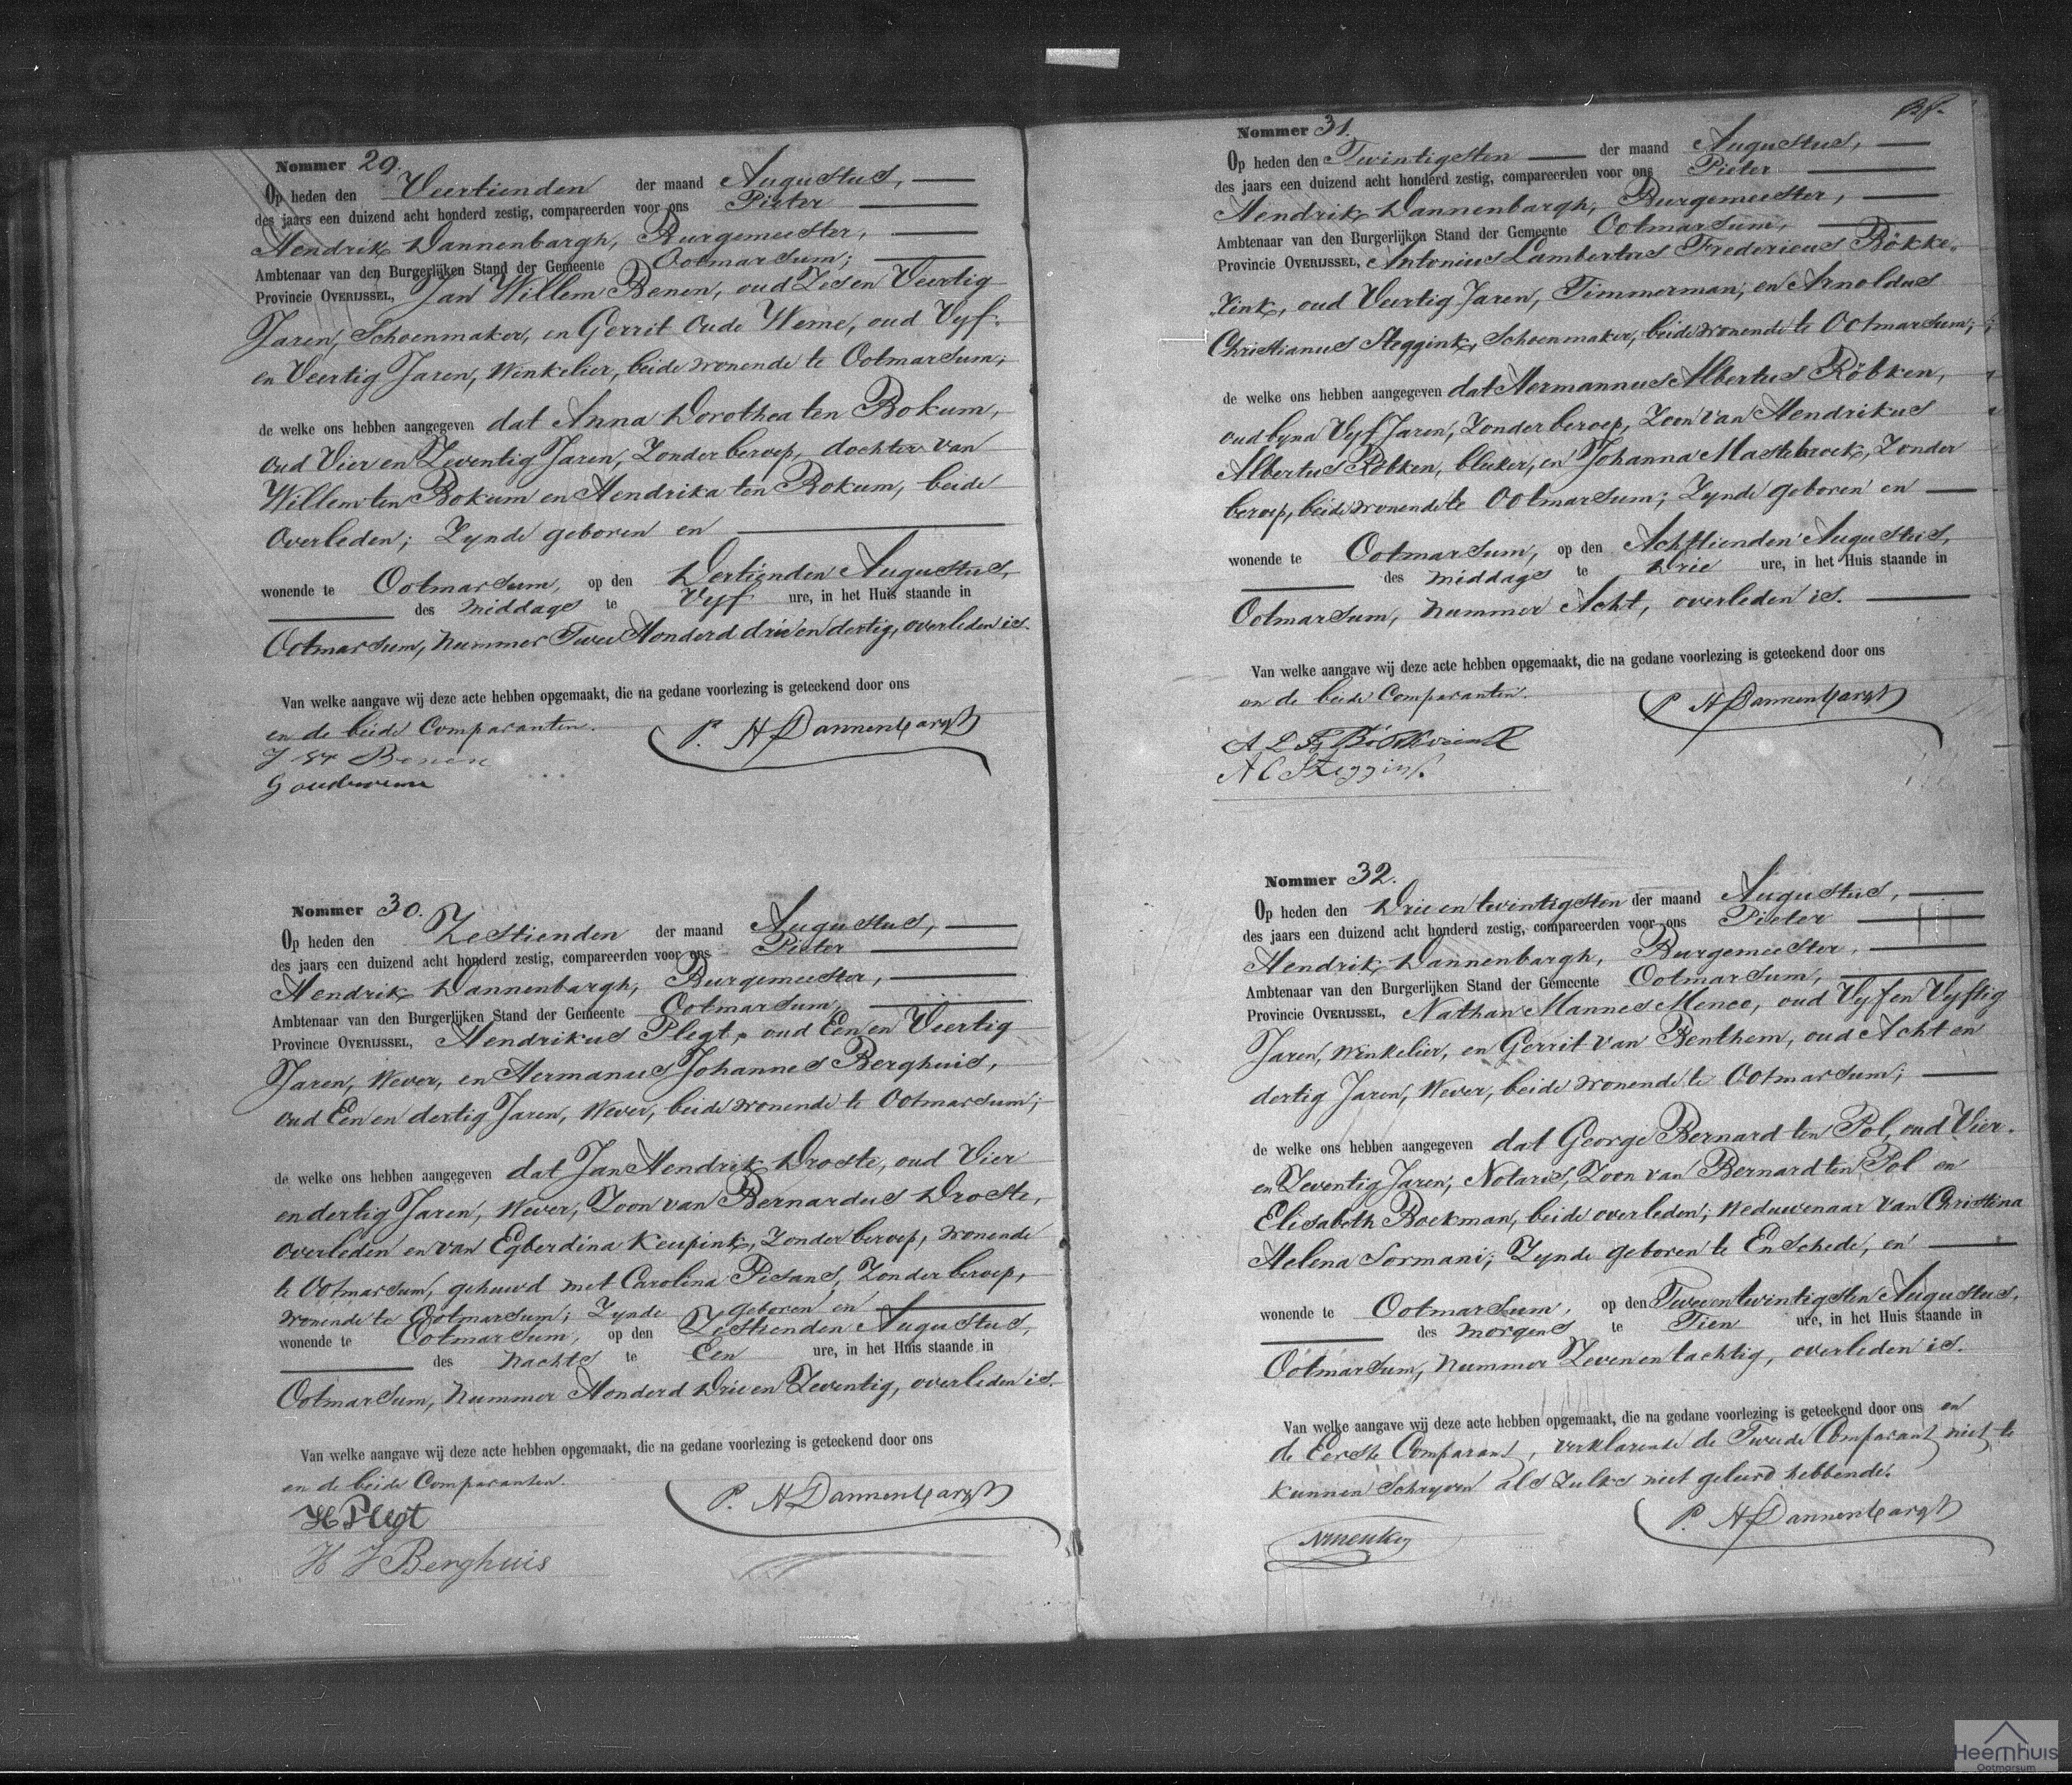 Nommer 29.
Op heden den Veertienden der maand Augustus,
des jaars een duizend acht honderd zestig, compareerden voor ons Pieter
Hendrik Dannenbargh, Burgemeester,
Ambtenaar van den Burgerlijken Stand der Gemeente Ootmarsum;
Provincie OVERIJSSEL, Jan Willem Benen, oud Zes en Veertig
Jaren, Schoenmaker, en Gerrit Oude Weme, oud Vyf-
en Veertig Jaren, Winkelier, beide wonende te Ootmarsum;
de welke ons hebben aangegeven dat Anna Dorothea ten Bokum,
oud Vier en Zeventig Jaren, Zonder beroep, dochter van
Willem ten Bokum en Hendrika ten Bokum, beide
overleden; Zynde geboren en
wonende te Ootmarsum, op den Dertienden Augustus,
des middags te Vyf ure, in het Huis staande in
Ootmarsum, nummer Twee Honderd drie en dertig, overleden is.
Van welke aangave wij deze acte hebben opgemaakt, die na gedane voorlezing is geteekend door ons
en de beide Comparanten. P. H Dannenbargh
J W Benen
G oudeweme
Nommer 30.
Op heden den Zestienden der maand Augustus,
des jaars een duizend acht honderd zestig, compareerden voor ons Pieter
Hendrik Dannenbargh, Burgemeester,
Ambtenaar van den Burgerlijken Stand der Gemeente Ootmarsum,
Provincie OVERIJSSEL, Hendrikus Plegt, oud Een en Veertig
Jaren, Wever, en Hermanus Johannes Berghuis,
oud Een en dertig Jaren, Wever, beide wonende te Ootmarsum;
de welke ons hebben aangegeven dat Jan Hendrik Droste, oud Vier
en dertig Jaren, Wever, Zoon van Bernardus Droste,
overleden en van Egberdina Keupink, Zonder beroep, wonende
te Ootmarsum, gehuwd met Carolina Pisans, Zonder beroep,
wonende te Ootmarsum; Zynde geboren en
wonende te Ootmarsum, op den Zestienden Augustus,
des nachts te Een ure, in het Huis staande in
Ootmarsum, nummer Honderd Drie en Zeventig, overleden is.
Van welke aangave wij deze acte hebben opgemaakt, die na gedane voorlezing is geteekend door ons
en de beide Comparanten. P. H Dannenbargh
H Plegt
H J Berghuis
Nommer 31.
Op heden den Twintigsten der maand Augustus,
des jaars een duizend acht honderd zestig, compareerden voor ons Pieter
Hendrik Dannenbargh, Burgemeester,
Ambtenaar van den Burgerlijken Stand der Gemeente Ootmarsum,
Provincie OVERIJSSEL, Antonius Lambertus Fredericus Bökke-
rink, oud Veertig Jaren, Timmerman, en Arnoldus
Christianus Steggink, Schoenmaker, beide wonende te Ootmarsum;
de welke ons hebben aangegeven dat Hermannus Albertus Röbken,
oud byna Vyf Jaren, Zonder beroep, Zoon van Hendrikus
Albertus Röbken, bleker, en Johanna Mastebroek, Zonder
beroep, beide wonende te Ootmarsum; Zynde geboren en
wonende te Ootmarsum, op den Achttienden Augustus,
des middags te Drie ure, in het Huis staande in
Ootmarsum, nummer Acht, overleden is.
Van welke aangave wij deze acte hebben opgemaakt, die na gedane voorlezing is geteekend door ons
en de beide Comparanten. P H Dannenbargh
A L F Bökkerink
A C Steggink
Nommer 32.
Op heden den Drie en twintigsten der maand Augustus,
des jaars een duizend acht honderd zestig, compareerden voor ons Pieter
Hendrik Dannenbargh, Burgemeester,
Ambtenaar van den Burgerlijken Stand der Gemeente Ootmarsum,
Provincie OVERIJSSEL, Nathan Mannes Menco, oud Vyf en Vyftig
Jaren, Winkelier, en Gerrit van Benthem, oud Acht en
dertig Jaren, Wever, beide wonende te Ootmarsum;
de welke ons hebben aangegeven dat George Bernard ten Pol, oud Vier-
en Zeventig Jaren, Notaris, Zoon van Bernard ten Pol en
Elisabeth Boekman, beide overleden; Weduwenaar van Christina
Helena Sormani; Zynde geboren te Enschede, en
wonende te Ootmarsum, op den Twee en twintigsten Augustus,
des morgens te Tien ure, in het Huis staande in
Ootmarsum, nummer Zeven en tachtig, overleden is.
Van welke aangave wij deze acte hebben opgemaakt, die na gedane voorlezing is geteekend door ons en
de Eerste Comparant, verklarende de Tweede Comparant niet te
kunnen Schryven als Zulks niet geleerd hebbende.
P. H Dannenbargh
Heemhuis
Ootmarsum